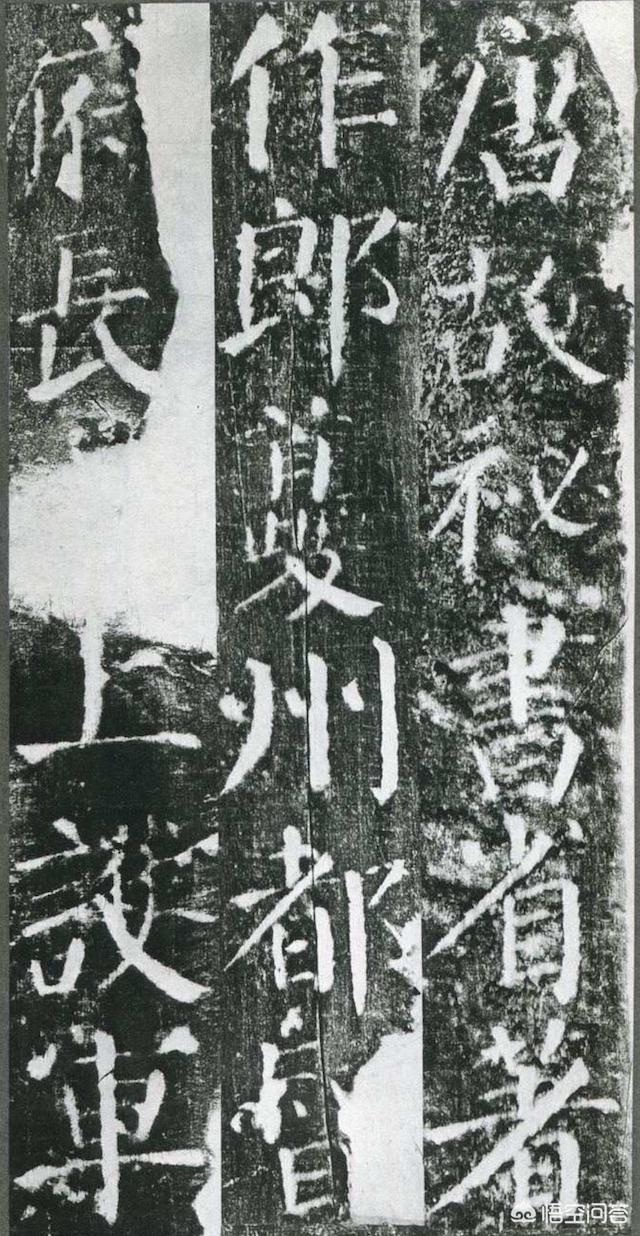 唐故祕書省著
作郎夔州都督
府長上護軍
悟空问答